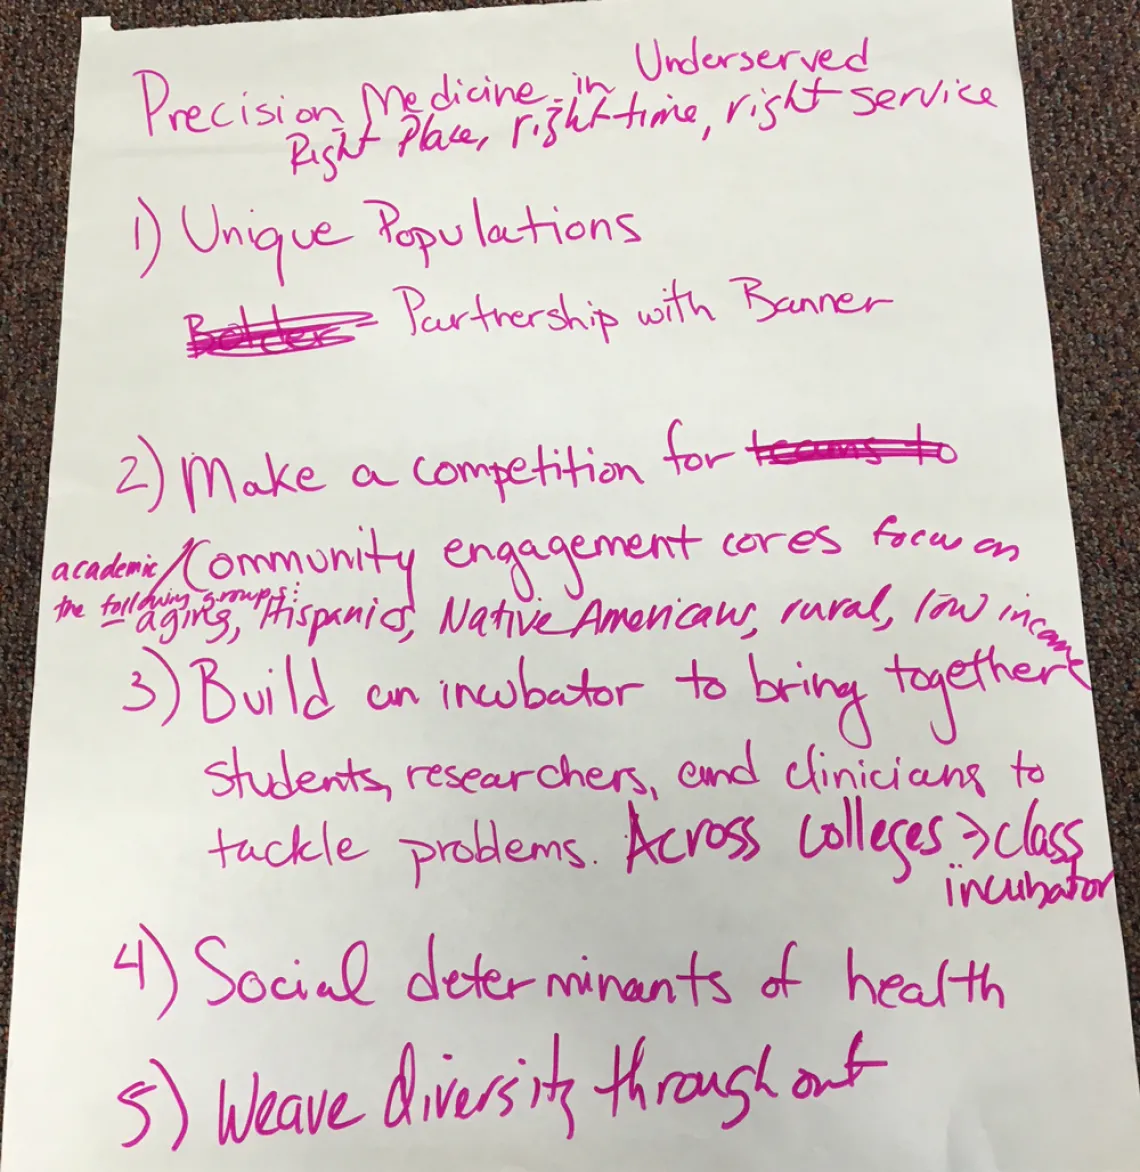 Precision Medicine in Underserved
Right Place, right time, right service
1) Unique Populations
Border Partnership with Banner
2) Make a competition for teams to
academic/Community engagement cores focus on
the following groups:
aging, Hispanics, Native Americans, rural, low income
3) Build an incubator to bring together
students, researchers, and clinicians to
tackle problems. Across Colleges → class
incubator
4) Social determinants of health
5) Weave diversity throughout